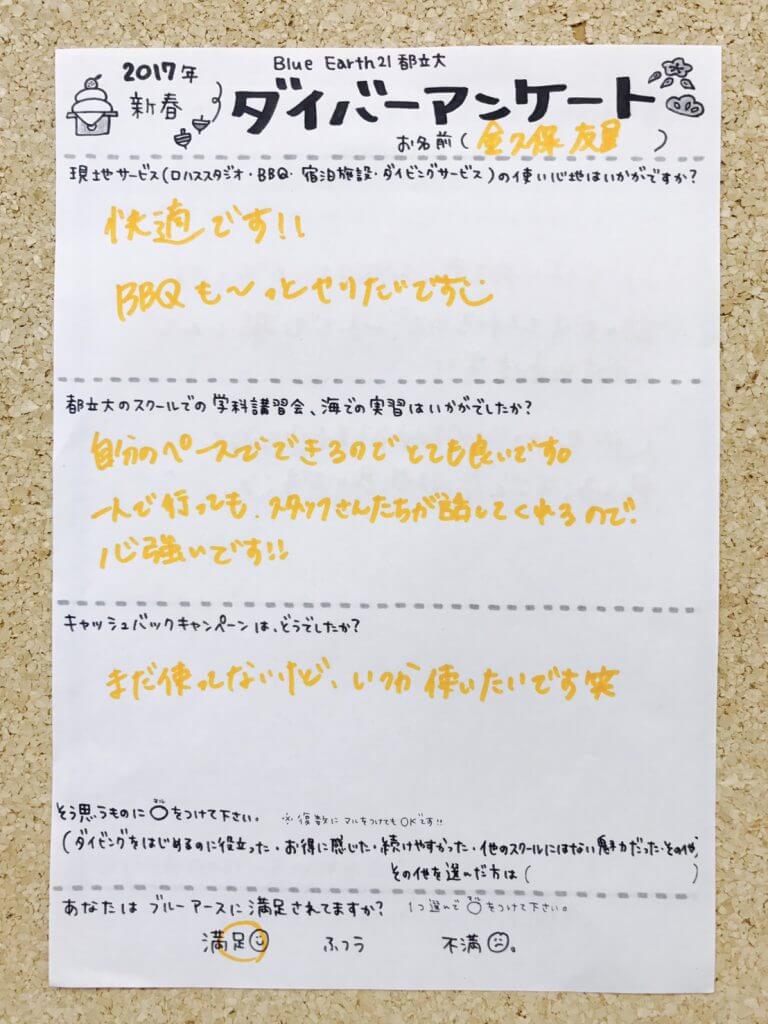 2017年
新春
Blue Earth21 都立大
ダイバーアンケート
お名前(金久保 友星)
現地サービス(ロハススタジオ・BBQ・宿泊施設・ダイビングサービス)の使い心地はいかがですか?
快適です!!
BBQも〜っとやりたいです
都立大のスクールでの学科講習会、海での実習はいかがでしたか?
自分のペースでできるのでとても良いです。
一人で行っても、スタッフさんたちが話してくれるので
心強いです!!
キャッシュバックキャンペーンは、どうでしたか?
まだ使ってないけど、いつか使いたいです笑
そう思うものに○をつけて下さい。 ※複数にマルをつけてもOKです!!
(ダイビングをはじめるのに役立った・お得に感じた・続けやすかった・他のスクールにはない魅力だった・その他)
その他を選んだ方は( )
あなたは ブルーアースに満足されてますか? 1つ選んで○をつけて下さい。
満足 ふつう 不満。